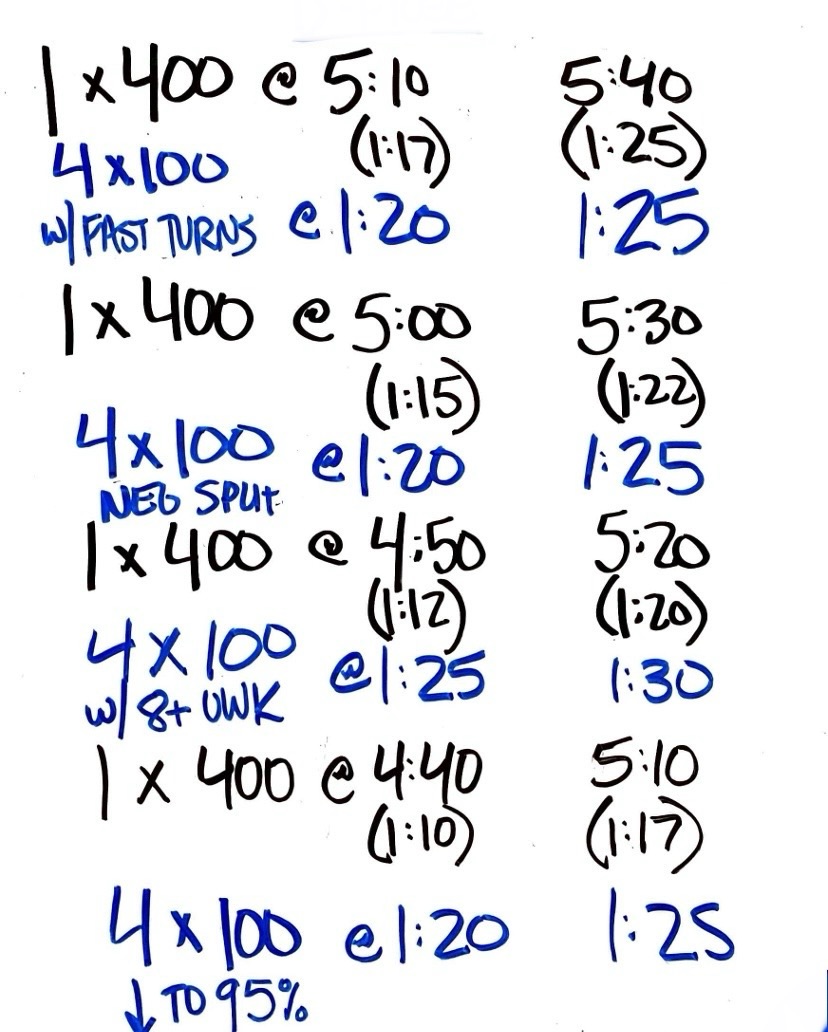 1 x 400 @ 5:10 5:40
(1:17) (1:25)
4 x 100
w/ FAST TURNS @ 1:20 1:25
1 x 400 @ 5:00 5:30
(1:15) (1:22)
4 x 100 @ 1:20 1:25
NEG SPLIT
1 x 400 @ 4:50 5:20
(1:12) (1:20)
4 x 100 @ 1:25 1:30
w/ 8+ UWK
1 x 400 @ 4:40 5:10
(1:10) (1:17)
4 x 100 @ 1:20 1:25
↓ TO 95%